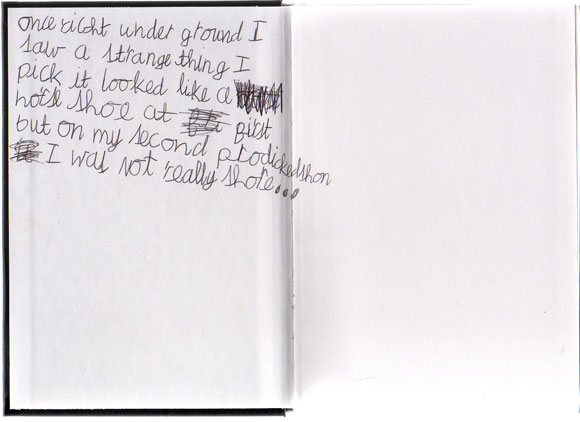 once right under ground I
saw a strange thing I
pick it looked like a
horse shoe at first
but on my second prodickedshon
I was not really shore...